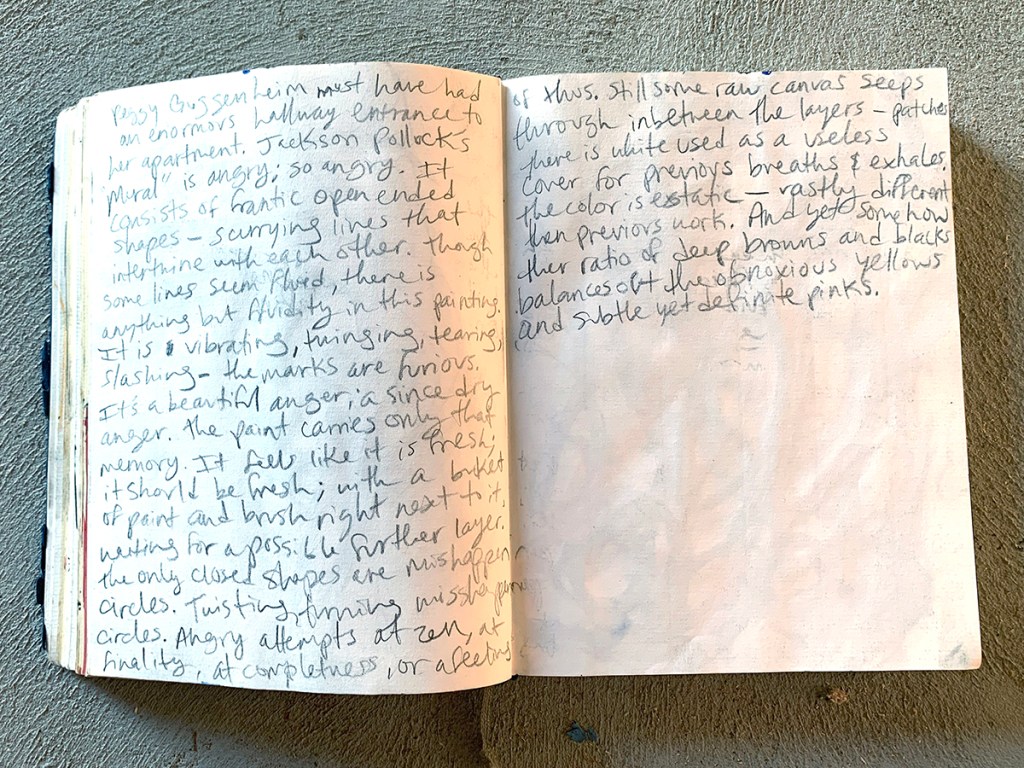 Peggy Guggenheim must have had
an enormous hallway entrance to
her apartment. Jackson Pollock's
"Mural" is angry; so angry. It
consists of frantic open ended
shapes – scurrying lines that
intertwine with each other. Though
some lines seem fluid, there is
anything but fluidity in this painting.
It is vibrating, twinging, tearing,
slashing – the marks are furious.
It's a beautiful anger; a since dry
anger. The paint carries only that
memory. It feels like it is fresh;
it should be fresh; with a bucket
of paint and brush right next to it,
waiting for a possible further layer.
The only closed shapes are mishappen
circles. Twisting, misshapen
circles. Angry attempts at zen, at
finality, at completness, or a feeling
of thus. Still some raw canvas seeps
through inbetween the layers – patches
there is white used as a useless
cover for previous breaths & exhales.
The color is estatic – vastly different
then previous work. And yet somehow
ther ratio of deep browns and blacks
balances out the obnoxious yellows
and subtle yet definite pinks.